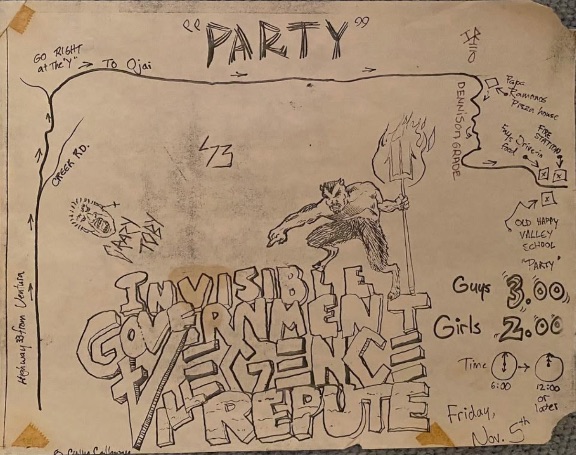 "PARTY"
GO RIGHT
at The "Y"
To Ojai
CREEK RD.
Highway 33 from Ventura
DENNISON GRADE
Papa
Ramonos
Pizza house
FIRE
STATION
Guys Drive-in
food
OLD HAPPY
VALLEY
SCHOOL
"PARTY"
PARTY
TODAY
INVISIBLE
GOVERNMENT
VERGENCE
ILL REPUTE
Guys 3.00
Girls 2.00
Time
6:00
12:00
or
later
Friday,
Nov. 5th